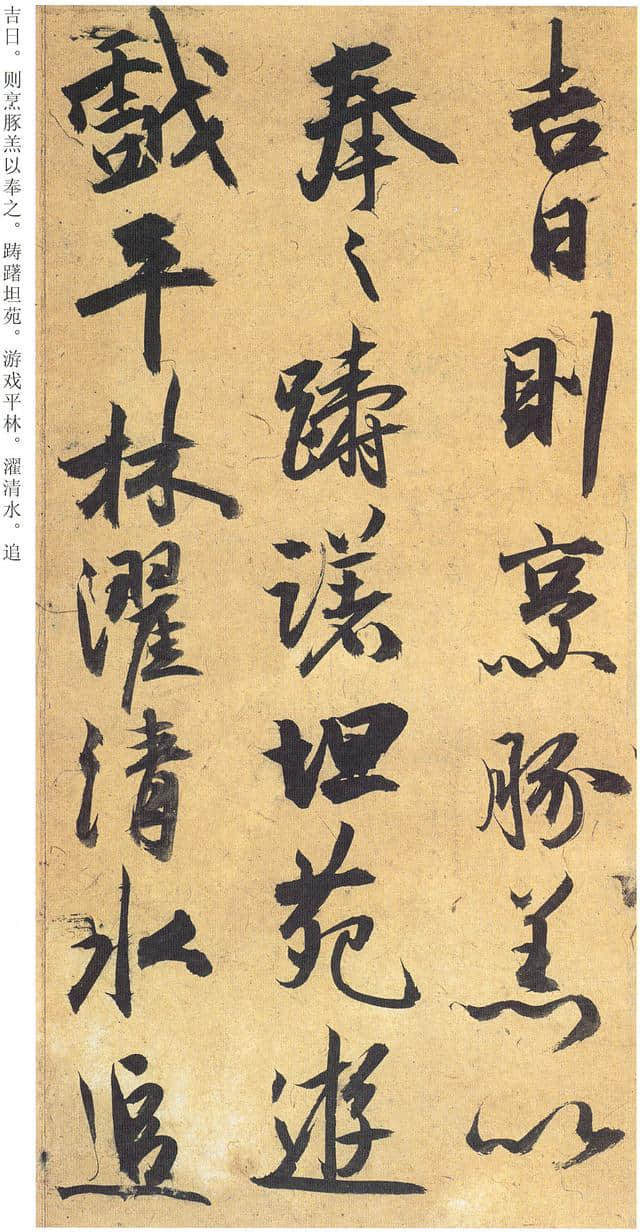 吉日則烹豚羔以
奉之躊躇坦苑遊
戲平林濯清水追
吉日。则烹豚羔以奉之。踌躇坦苑。游戏平林。濯清水。追